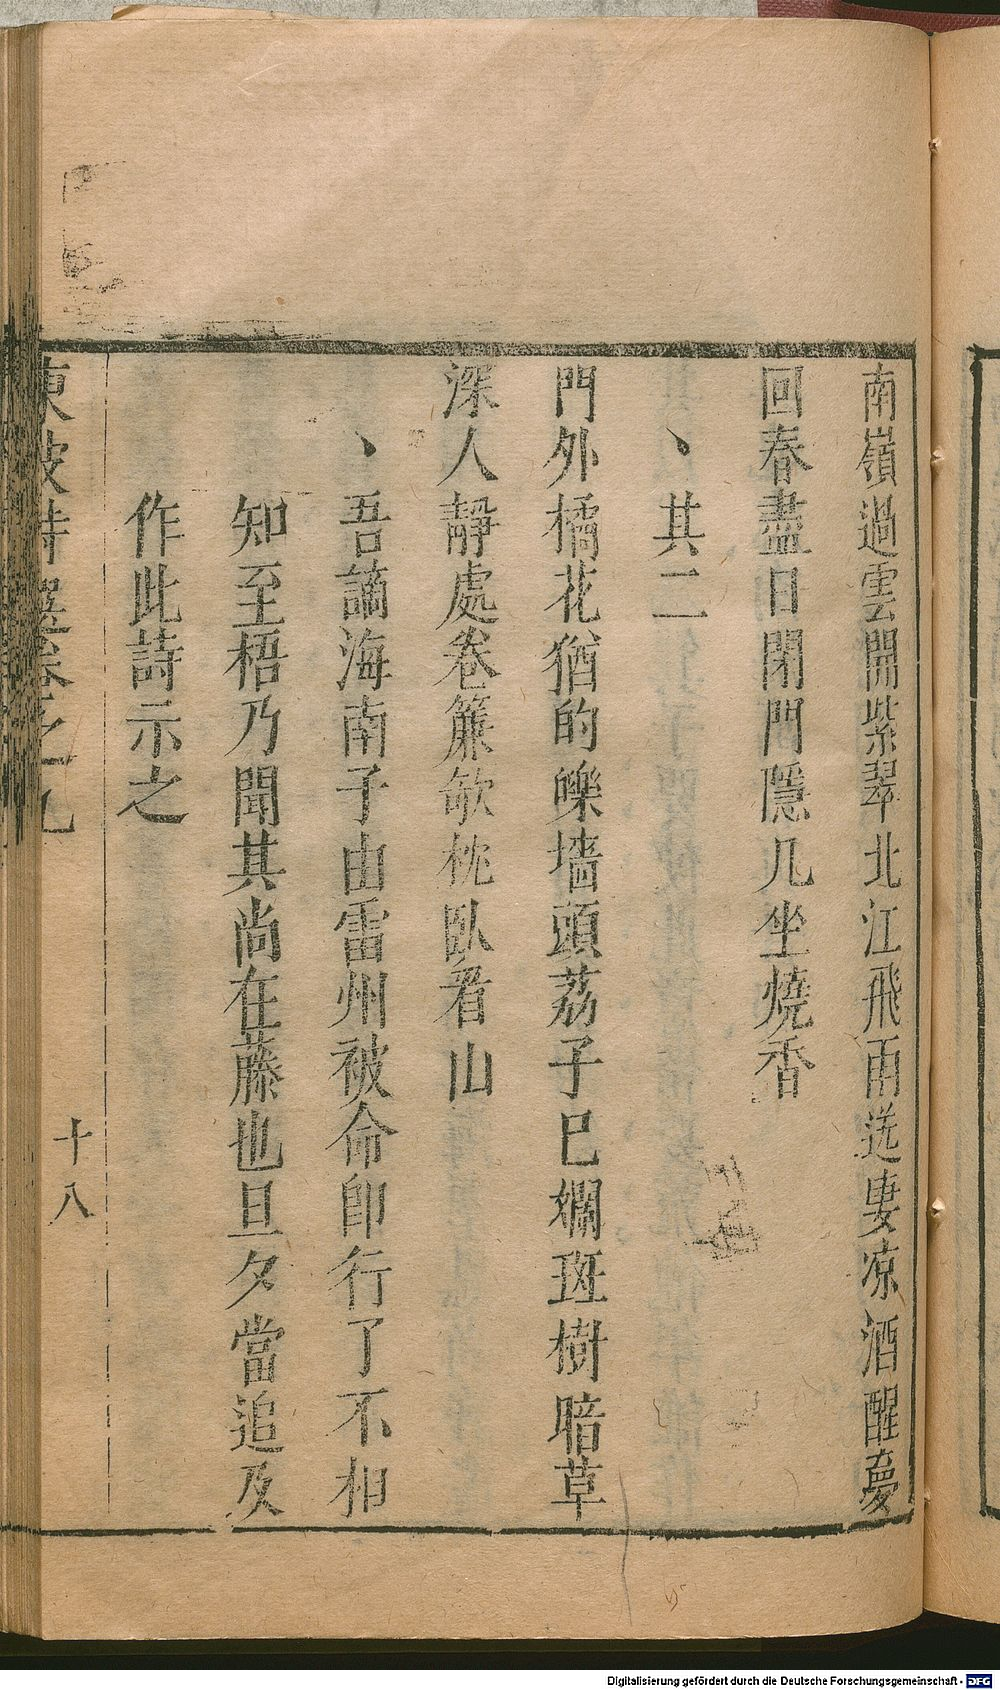 南嶺過雲開紫翠北江飛雨送凄凉酒醒夢
回春盡日閉門隱几坐燒香
、其二
門外橘花猶的皪墻頭荔子已斕斑樹暗草
深人靜處卷簾欹枕臥看山
、吾謫海南子由雷州被命即行了不相
知至梧乃聞其尚在藤也旦夕當追及
作此詩示之
東坡詩選卷之九
十八
Digitalisierung gefördert durch die Deutsche Forschungsgemeinschaft - DFG